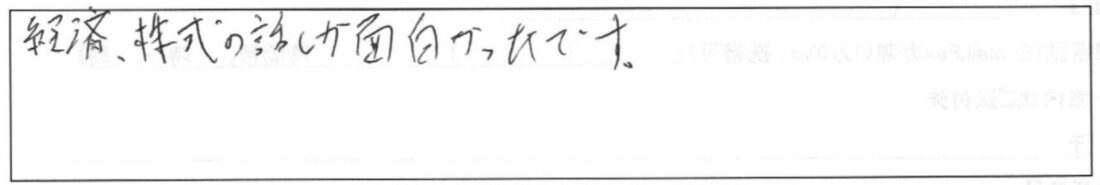 経済、株式の話しが面白かったです。